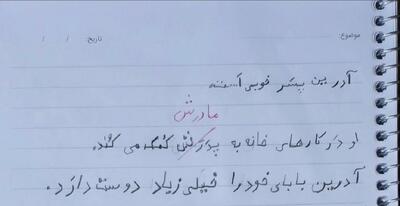 موضوع: تاریخ: / /
آدرین پسر خوبی است
مادرش
او در کارهای خانه به پدرش کمک می کند.
آدرین بابای خود را خیلی زیاد دوست دارد.